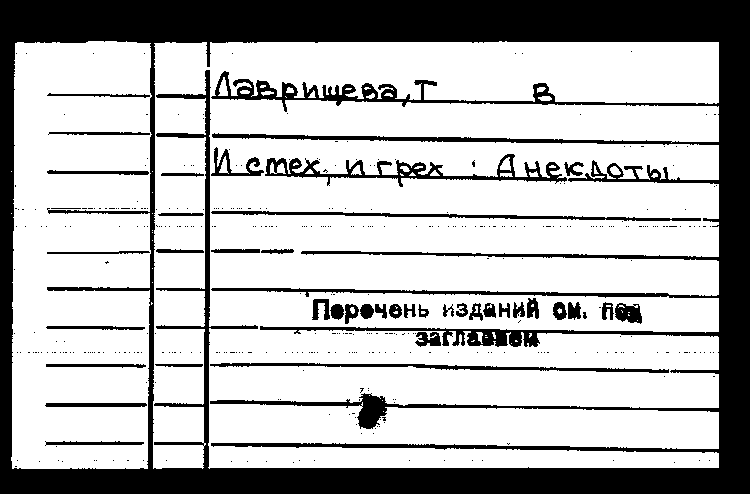 Лаврищева, Т В
И смех, и грех : Анекдоты.
Перечень изданий см. под
заглавием